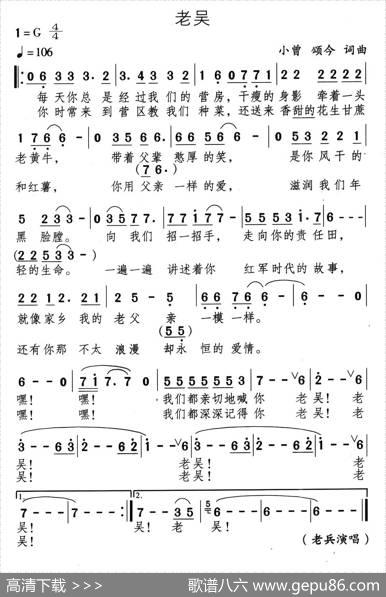 老吴
1=G 4/4
♩=106
小曾 颂今 词曲
每天你总是经过我们的营房，干瘦的身影 牵着一头
你时常来到营区教我们种菜，还送来香甜的花生甘蔗
老黄牛， 带着父辈 憨厚的笑， 是你风干的
和红薯， 你用父亲 一样的爱， 滋润我们年
黑 脸膛。 向 我们 招一招手， 走向你的责任田，
轻的生命。 一遍一遍 讲述着你 红军时代的故事，
就像家乡 我的老父 亲 一模一样。
还有你那 不太 浪漫 却永 恒的爱情。
嘿！ 嘿！ 我们都亲切地喊 你 老吴！老
嘿！ 嘿！ 我们都深深记得 你 老吴！老
吴！ 老吴！ 老
吴！ 老吴！ 老
吴！ 吴！老 吴！
吴！
（老兵演唱）
高清下载 >>> 歌谱八六 www.gepu86.com